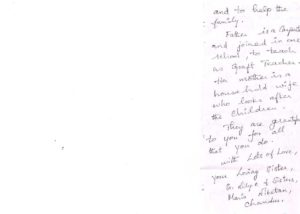 and to help the
family.
Father is a Carpenter
and joined in one
school, to teach
as Craft Teacher.
His mother is a
household wife
who looks after
the children.
They are grateful
to you for all
that you do.
with Lots of Love,
your Loving Sister,
Sr. & Sisters,
Maria